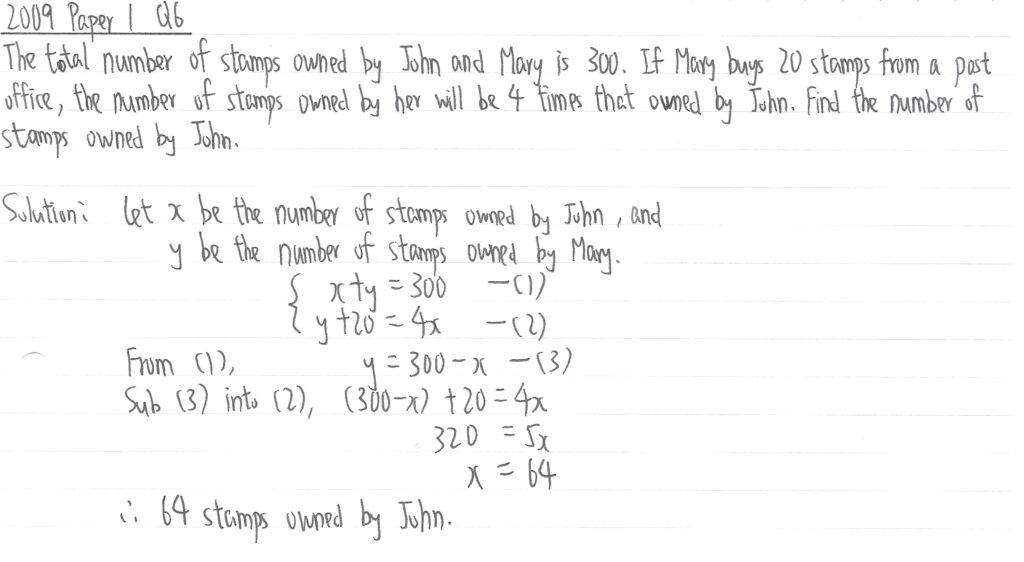 2009 Paper 1 Q6
The total number of stamps owned by John and Mary is 300. If Mary buys 20 stamps from a post
office, the number of stamps owned by her will be 4 times that owned by John. Find the number of
stamps owned by John.
Solution: Let x be the number of stamps owned by John, and
y be the number of stamps owned by Mary.
{ x+y = 300 —(1)
y+20 = 4x —(2)
From (1), y = 300-x —(3)
Sub (3) into (2), (300-x) +20 = 4x
320 = 5x
x = 64
∴ 64 stamps owned by John.